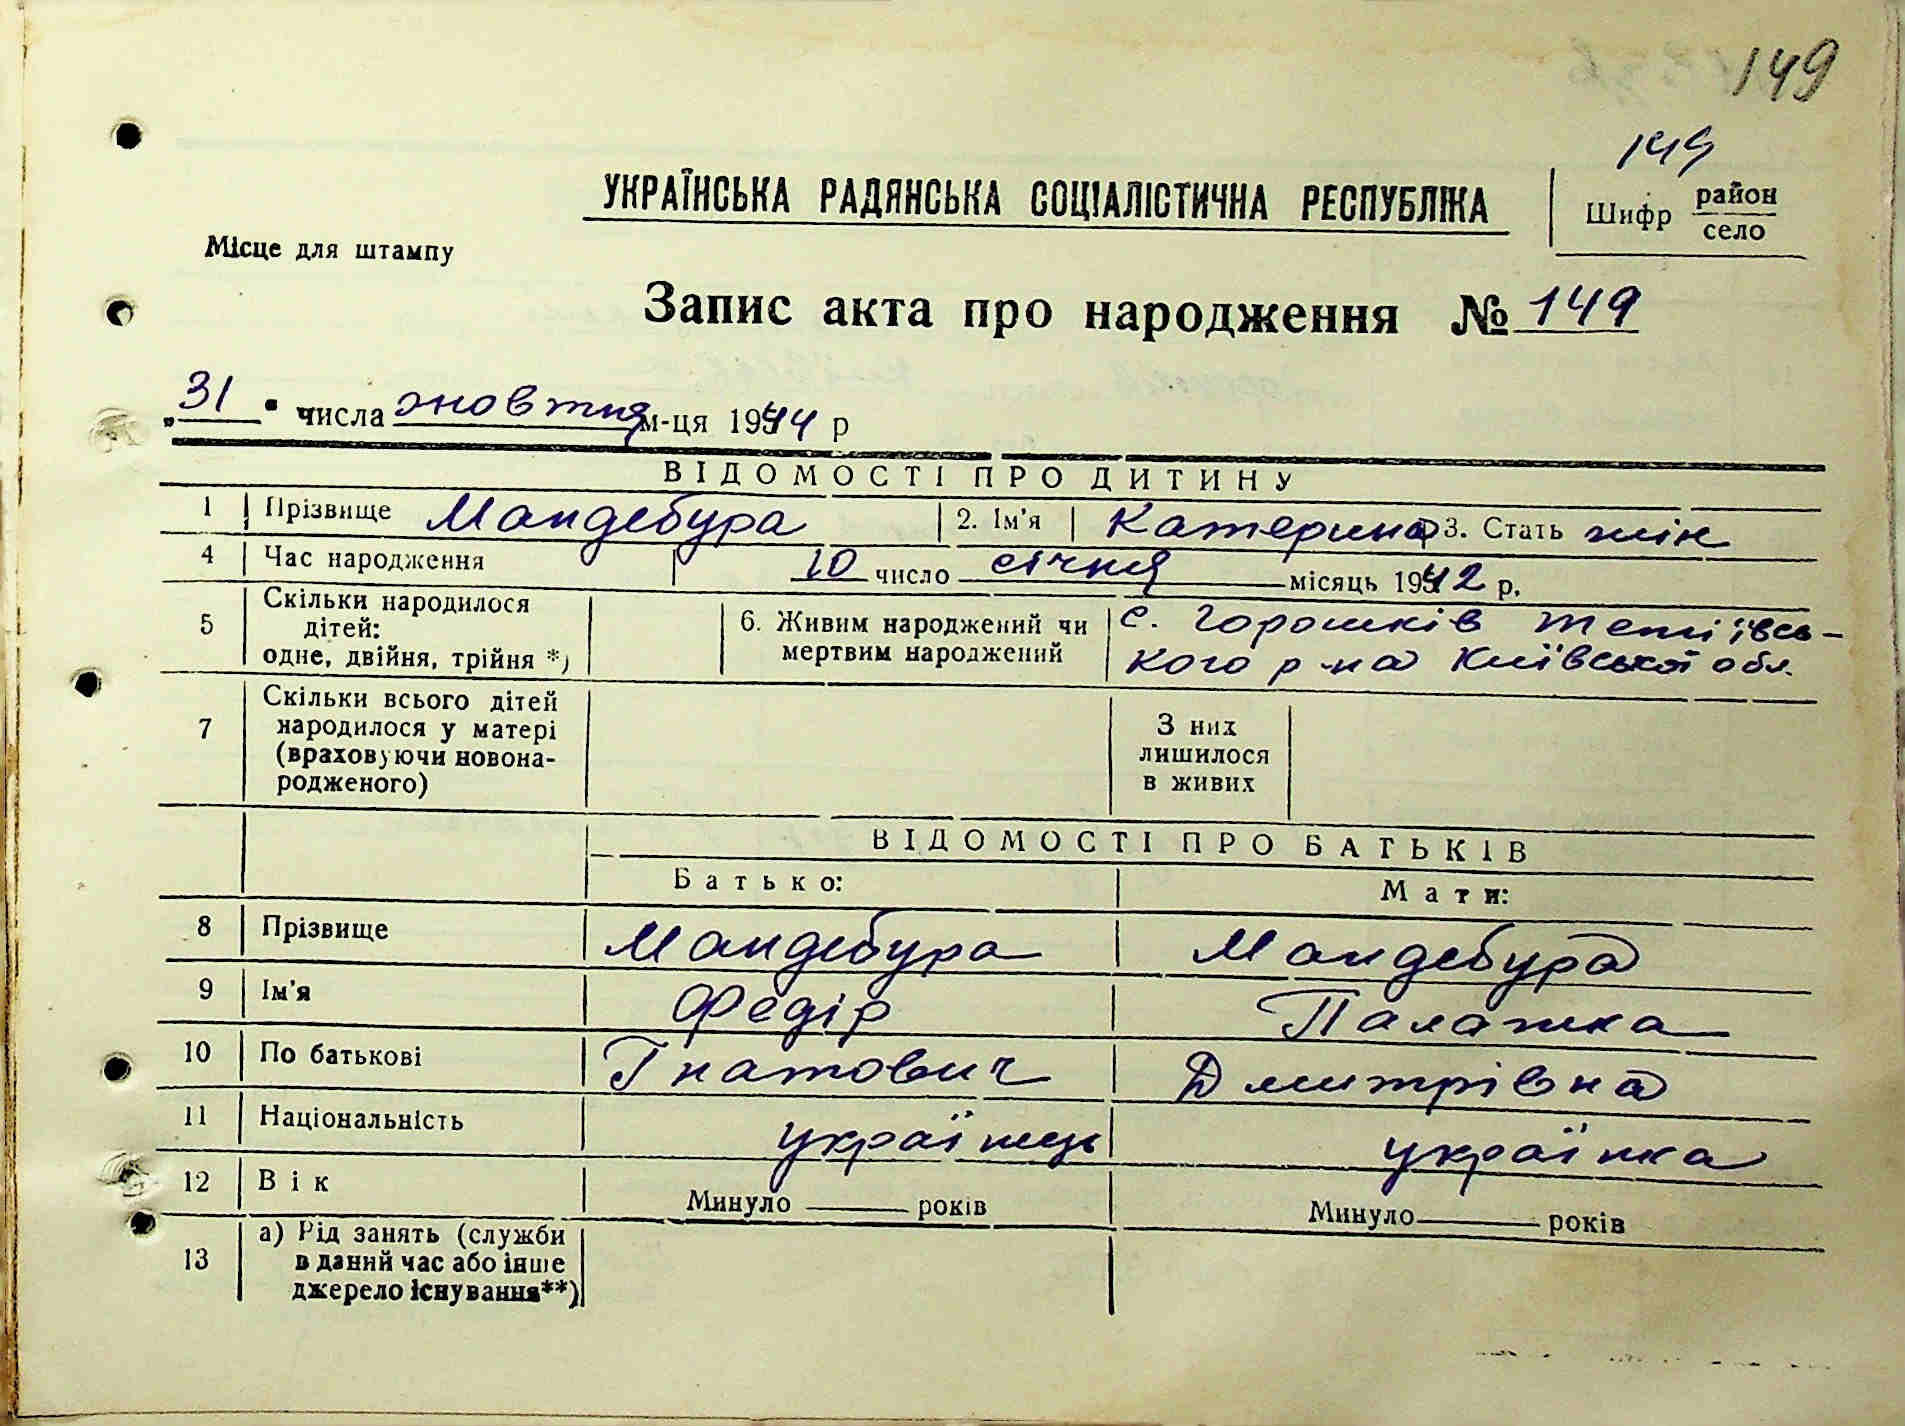 149
149
УКРАЇНСЬКА РАДЯНСЬКА СОЦІАЛІСТИЧНА РЕСПУБЛІКА
Шифр район
село
Місце для штампу
Запис акта про народження № 149
„31" числа жовтня м-ця 1944 р
ВІДОМОСТІ ПРО ДИТИНУ
1 Прізвище Мандебура 2. Ім'я Катерина 3. Стать жін
4 Час народження 10 число січня місяць 1942 р.
5 Скільки народилося
дітей:
одне, двійня, трійня *)
6. Живим народжений чи
мертвим народжений
с. Горошків Тетіївсь-
кого р-на Київської обл.
7 Скільки всього дітей
народилося у матері
(враховуючи новона-
родженого)
З них
лишилося
в живих
ВІДОМОСТІ ПРО БАТЬКІВ
Батько: Мати:
8 Прізвище Мандебура Мандебура
9 Ім'я Федір Палажка
10 По батькові Гнатович Дмитрівна
11 Національність українець українка
12 Вік Минуло років Минуло років
13 а) Рід занять (служби
в даний час або інше
джерело існування**)